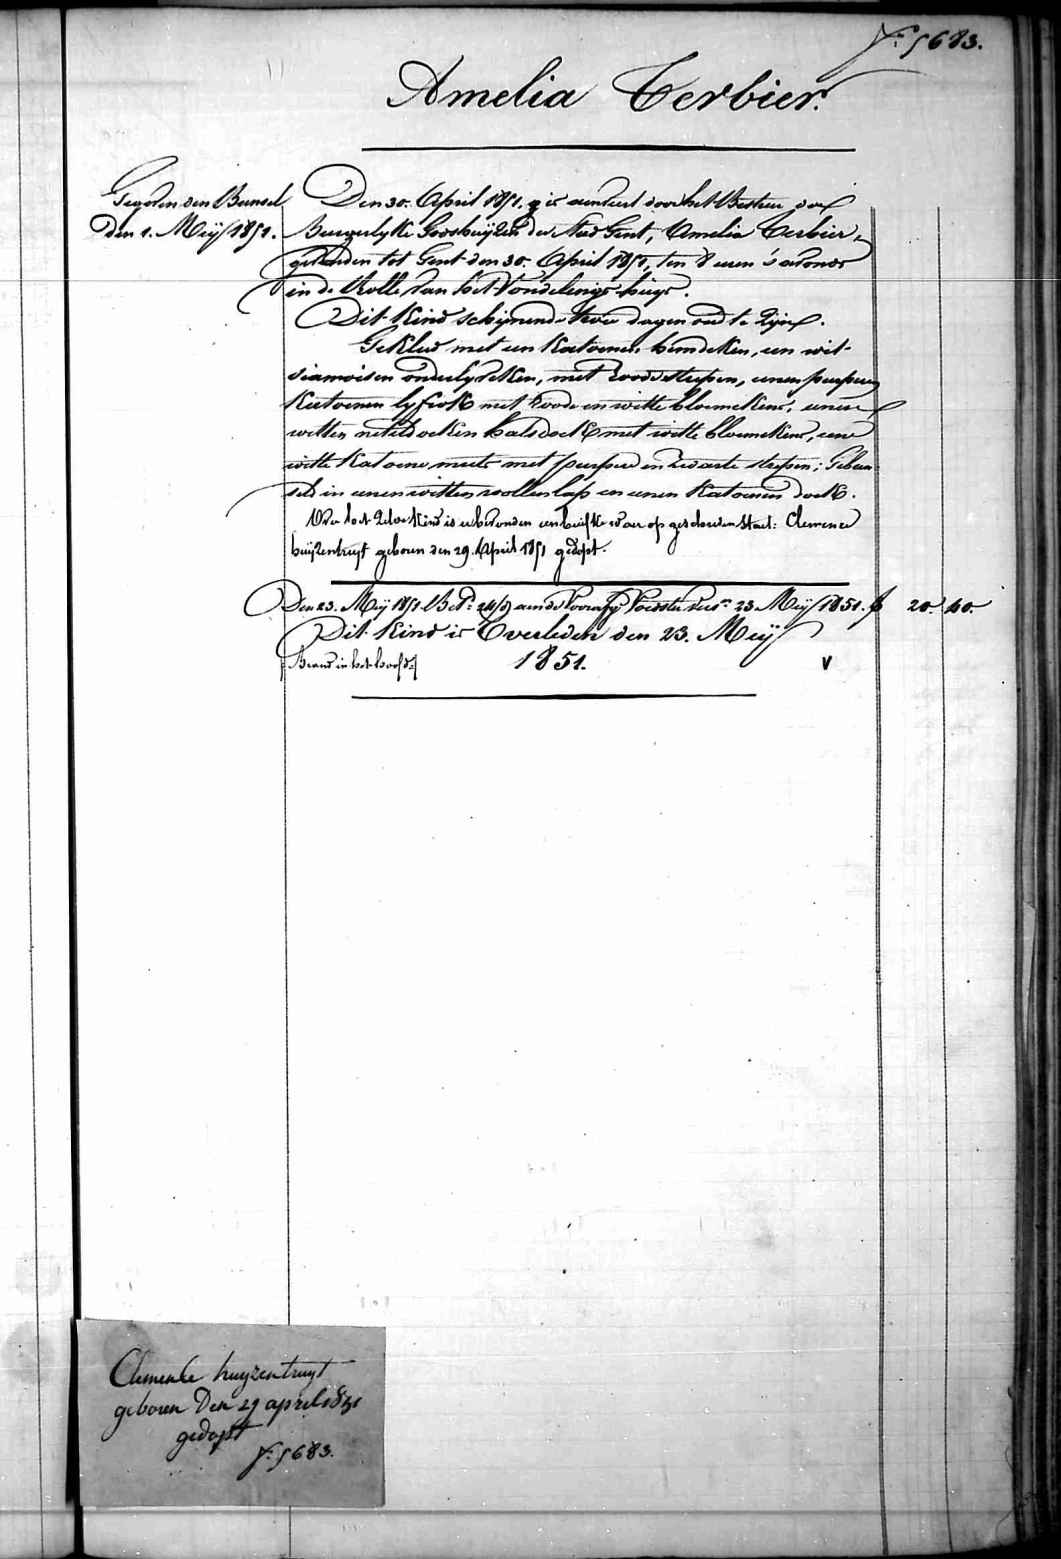 N.º 5683.
Amelia Terbier.
Gegeven den Bunsel
den 1. Meÿ 1851.
Den 30. April 1851. is aenveert door het Bestier der
Burgerlyke Godshuÿzen der Stad Gent, Amelia Terbier,
gevonden tot Gent den 30. April 1851, ten 8 uren 's avonds
in de Rolle van het Vondelings-huÿs.
Dit Kind schijnende twee dagen oud te zijn.
Gekleed met een Katoenen hemdeken, een wit
siamoisen onderlyveken, met roode strepen, eenen purperen
Katoenen lyfrok met roode en witte bloemekens, eenen
witten neteldoeken halsdoek met witte bloemekens, eene
witte Katoene muts met purpere en zwarte strepen; Gebun-
seld in eenen witten wollen lap en eenen Katoenen doek.
Op het zelve Kind is er bevonden een briefke waer op geschreven staet: Clemence
huÿzentruyt geboren den 29. April 1851 gedopt.
Den 23. Meÿ 1851 Bet.d aen de Voedster 23 Meÿ 1851. f 20. 40.
Dit Kind is Overleden den 23. Meÿ
1851.
Brand in het hoofd
v
Clemence huyzentruyt
geboren Den 29 april 1851
gedopt
N.º 5683.